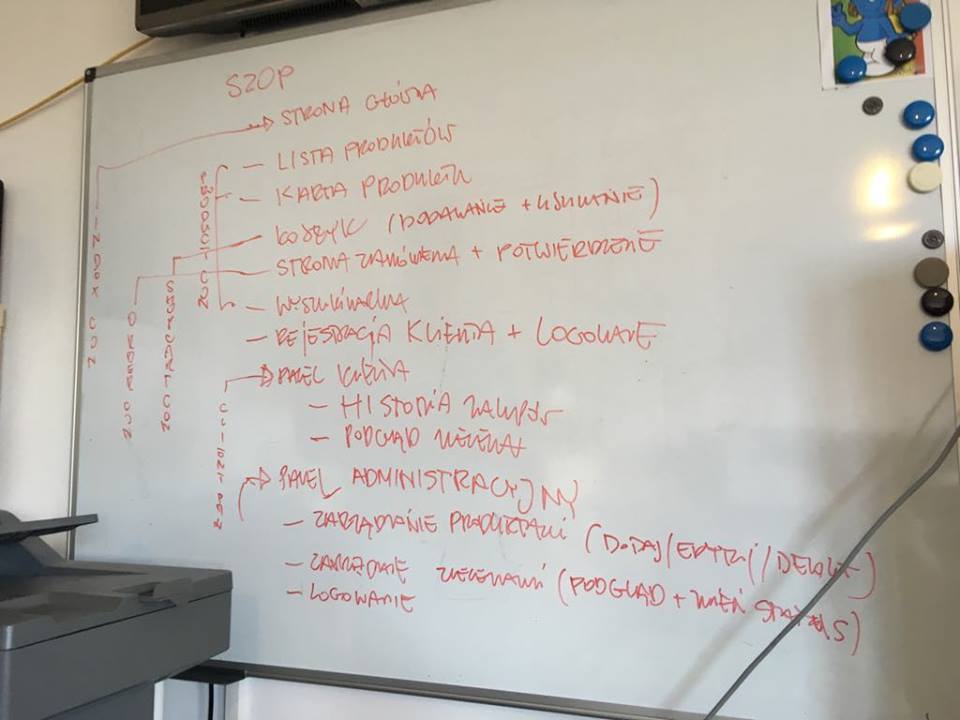 SZOP
STRONA GŁÓWNA
- LISTA PRODUKTÓW
- KARTA PRODUKTU
KOSZYK (DODAWANIE + USUWANIE)
STRONA ZAMÓWIENIA + POTWIERDZENIE
- WYSZUKIWARKA
- REJESTRACJA KLIENTA + LOGOWANIE
PANEL KLIENTA
- HISTORIA ZAKUPÓW
- PODGLĄD ZLECENIA
PANEL ADMINISTRACYJNY
- ZARZĄDZANIE PRODUKTAMI (DODAJ/EDYTUJ/DELETE)
- ZARZĄDZANIE ZLECENIAMI (PODGLĄD + ZMIEŃ STATUS)
- LOGOWANIE
INDEX CON
ORDER CON
SHOPCART CON
PRODUCT CON
CLIENT